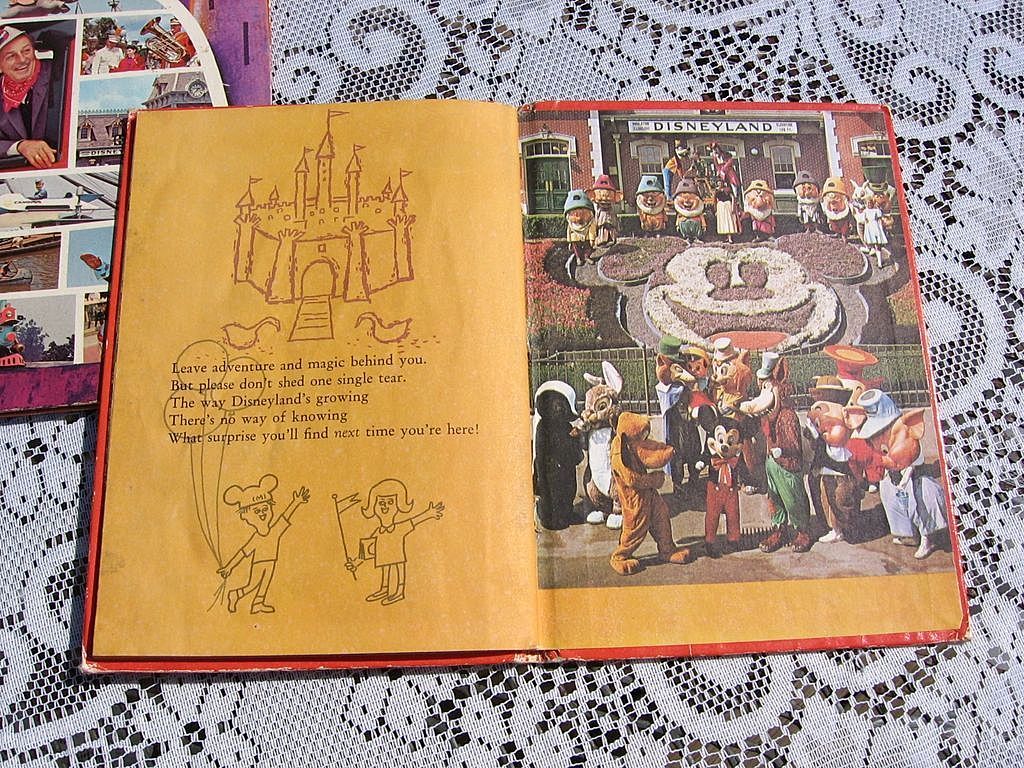 Leave adventure and magic behind you.
But please don't shed one single tear.
The way Disneyland's growing
There's no way of knowing
What surprise you'll find next time you're here!
DISNEYLAND